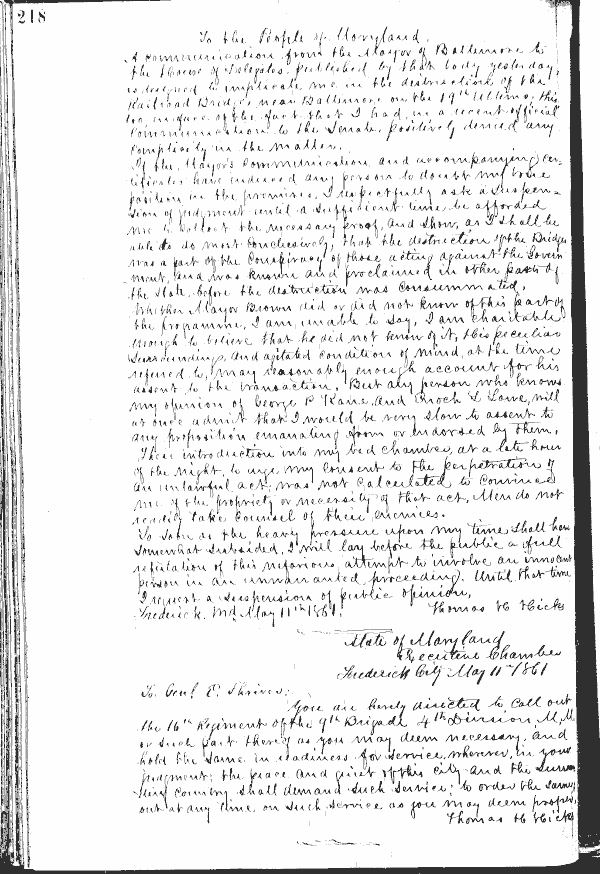 218
To the People of Maryland.
A communication from the Mayor of Baltimore to
the House of Delegates, published by that body yesterday,
is designed to implicate me in the destruction of the
Railroad Bridges near Baltimore on the 19th Ultimo, this
too, in face of the fact that I had, in a recent official
Communication to the Senate, positively denied any
complicity in the matter.
If the Mayor's Communication and accompanying cer-
tificates have induced any person to doubt my true
position in the premises, I respectfully ask a suspen-
sion of judgment until a sufficient time be afforded
me to collect the necessary proof, and show, as I shall be
able to do most conclusively, that the destruction of the Bridges
was a part of the Conspiracy of those acting against the Govern
ment, and was known and proclaimed in other parts of
the State before the destruction was consummated.
Whether Mayor Brown did or did not know of this part of
the programme, I am unable to say. I am charitable
enough to believe that he did not know of it. His peculiar
surroundings, and agitated condition of mind, at the time
refered to, may reasonably enough account for his
assent to the transaction. But any person who knows
my opinion of George P. Kane, and Enoch L Lowe, will
at once admit that I would be very slow to assent to
any proposition emanating from or endorsed by them.
Their introduction into my bed chamber, at a late hour
of the night, to urge my consent to the perpetration of
an unlawful act, was not calculated to convince
me of the propriety or necessity of that act. Men do not
readily take counsel of their enemies.
So soon as the heavy pressure upon my time shall have
somewhat subsided, I will lay before the public a full
refutation of this nefarious attempt to involve an innocent
person in an unwarranted proceeding. Until that time
I request a suspension of public opinion.
Frederick. Md. May 11th 1861. Thomas H Hicks
State of Maryland
Executive Chamber
Frederick City May 11th 1861
To. Genl E. Shriver.
You are hereby directed to call out
the 16th Regiment of the 9th Brigade 4th Division, M, M
or such part thereof as you may deem necessary, and
hold the same in readiness for service, wherever, in your
judgment; the peace and quiet of this City and the surroun
ding Country shall demand such service; to order the same
out at any time on such service as you may deem proper.
Thomas H Hicks